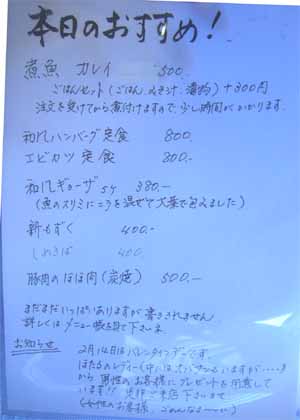 本日のおすすめ!
煮魚 カレイ 500.
ごはんセット(ごはん、みそ汁、漬物)+300円
注文を受けてから煮付けますので、少し時間がかかります。
和風ハンバーグ定食 800.
エビカツ定食 800.-
和風ギョーザ 5ケ 380.-
(魚のスリミにニラを混ぜて大葉で包みました)
新もずく 400.-
しめさば 400.
豚肉のほほ肉(炭焼) 500.-
まだまだいっぱいありますが書ききれません
詳しくはメニュー帳を見て下さいネ
お知らせ
2月14日はバレンタインデーです。
ほたるのレディー(中にはオバサンもいますが……)
から 男性のお客様にプレゼントを用意して
います!! 是非ご来店下さいませ
(女性のお客様、ごめんなさ〜い)